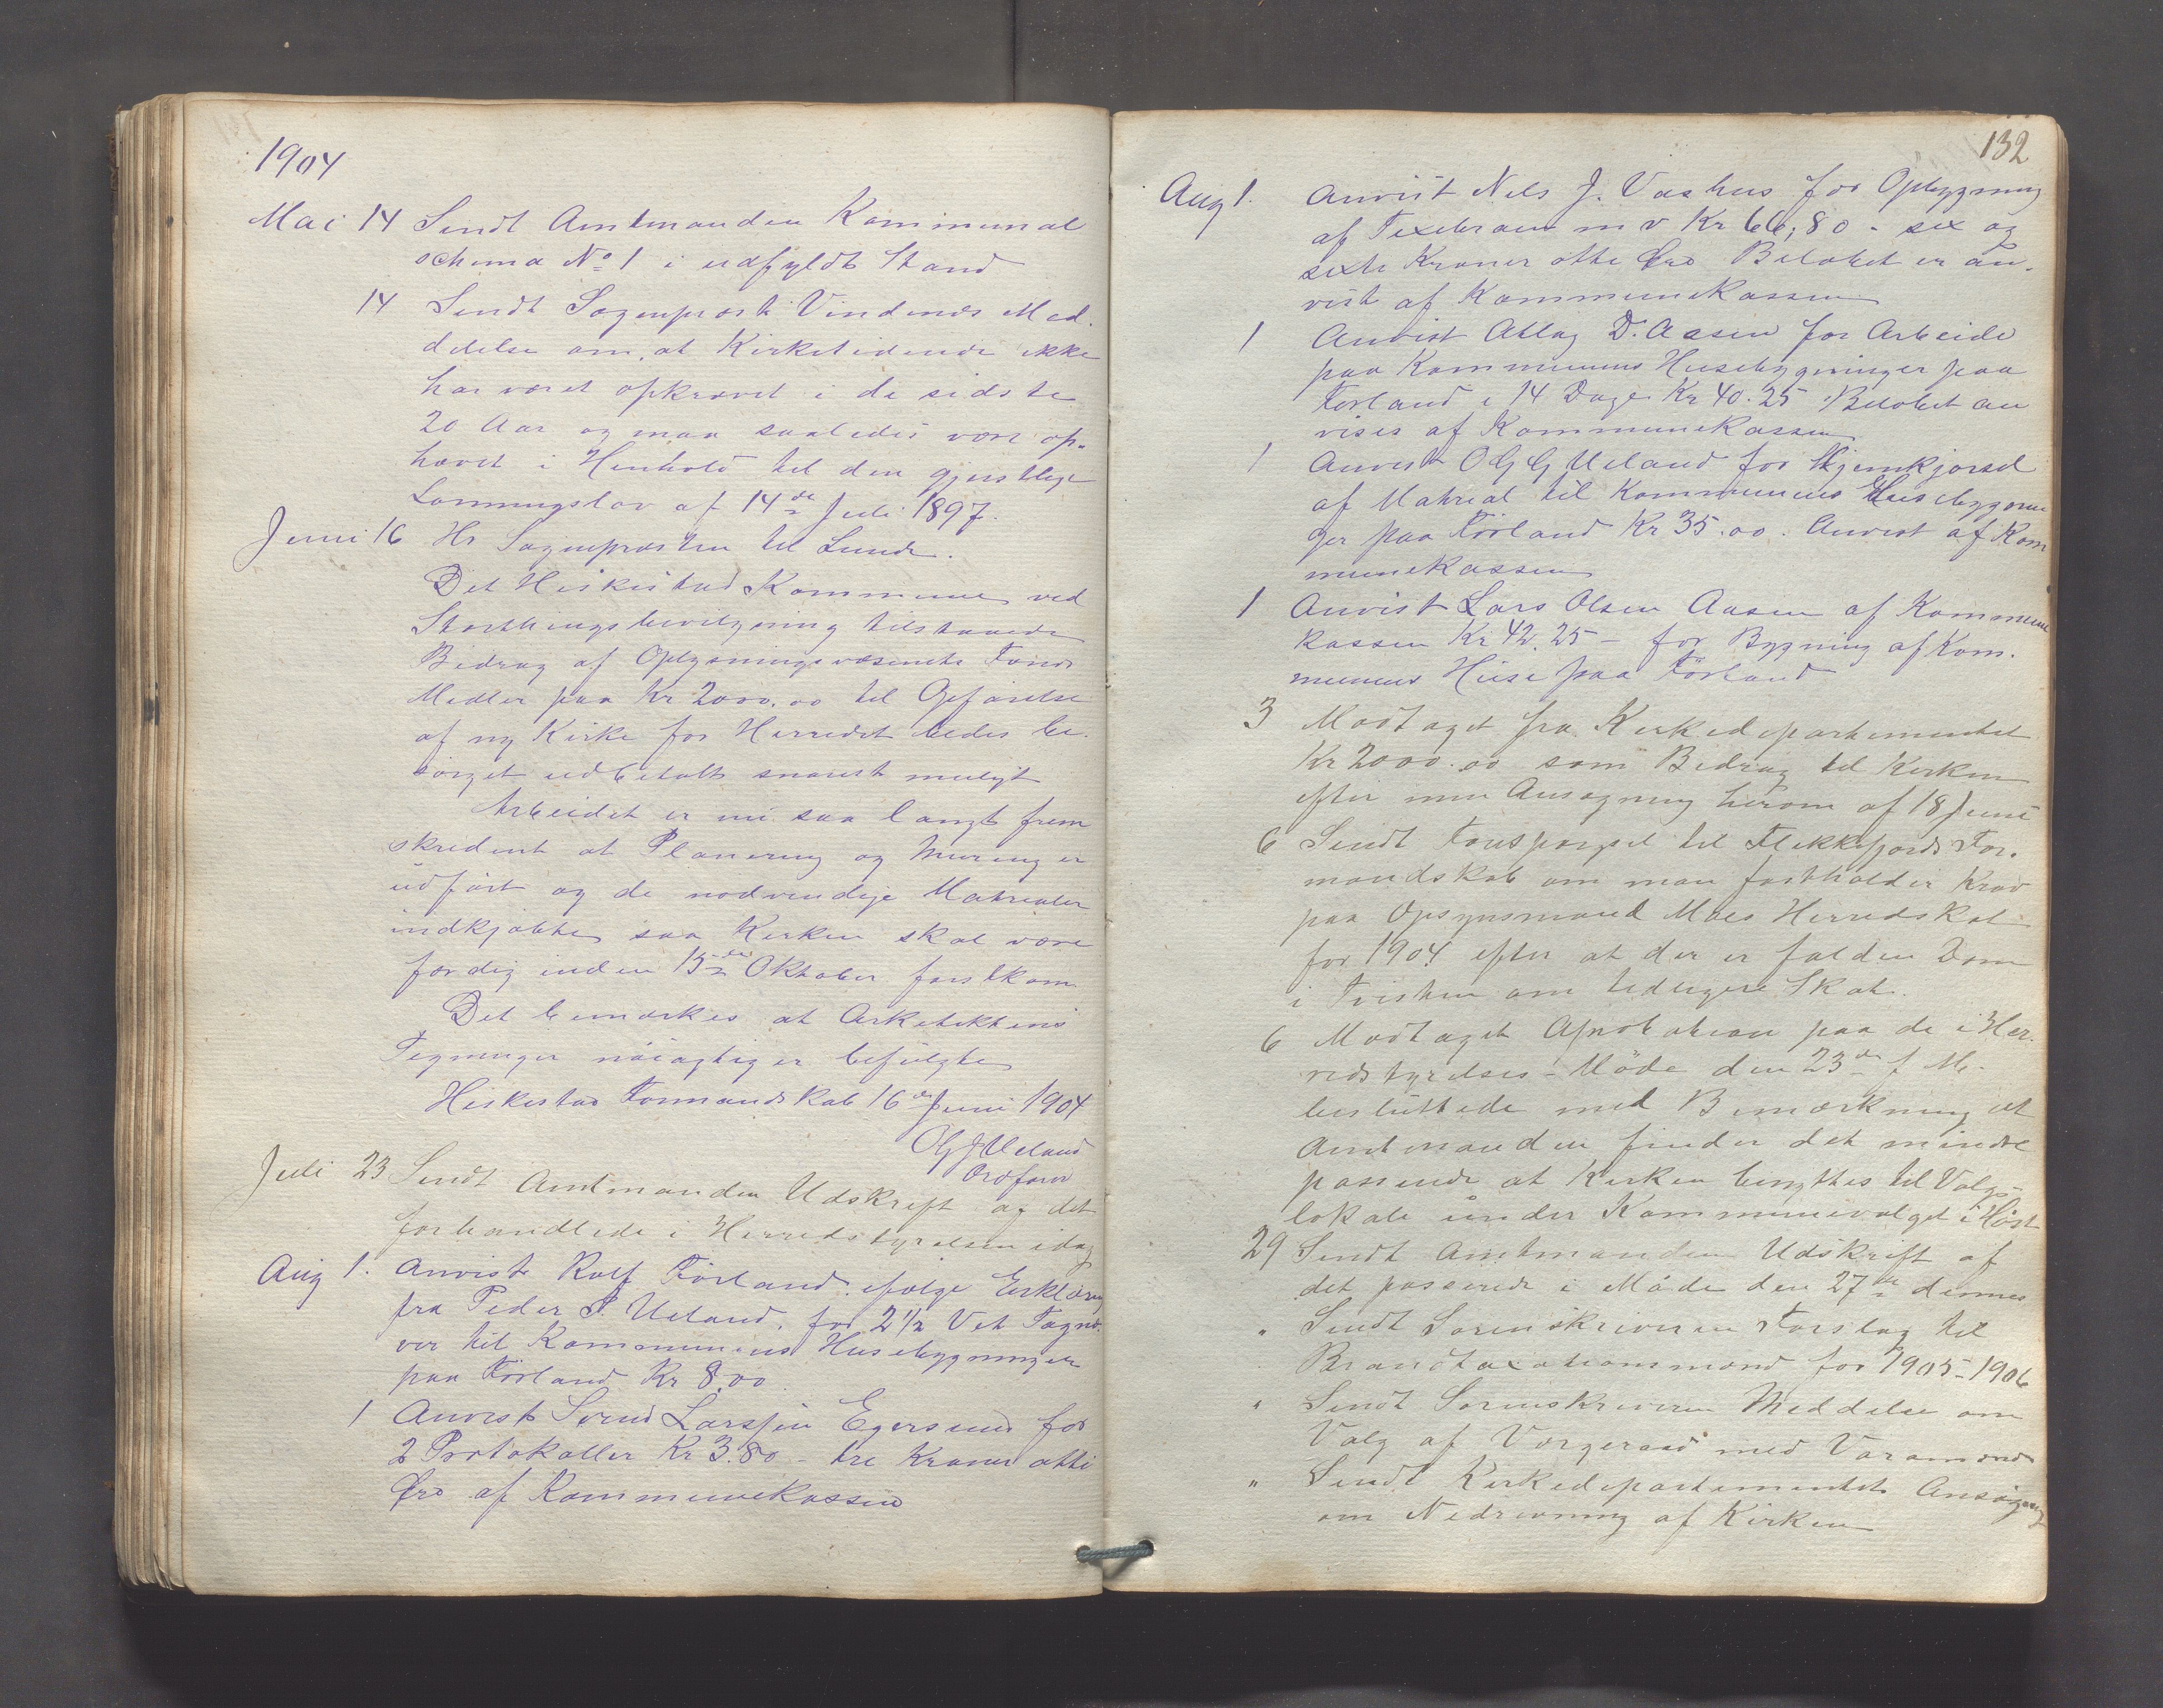 1904
Mai 14 Sendt Amtmanden Kommunal
schema No 1 i udfyldt Stand
14 Sendt Sogneprest Vindenes Med-
delelse om, at Kirketiende ikke
har været opkrævet i de sidste
20 Aar og maa saaledes være op-
hævet i Henhold til den gjestlige
Lønningslov af 14de Juli 1897.
Juni 16 Hr Sognepresten til Lunde.
Det Heskestad Kommune ved
Storthingsbevilgning tilstaaede
Bidrag af Oplysningsvæsenets Fonds
Midler paa Kr 2000.00 til Opførelse
af ny Kirke for Herredet bedes be-
sørget udbetalt snarest muligt
Arbeidet er nu saa langt frem
skrident at Planering og Muring er
udført og de nødvendige Materialer
indkjøbte, saa Kirken skal være
færdig inden 15de Oktober førstkom
Det bemærkes at Arketektens
Tegninger nøiagtig er befulgte
Heskestad Formandskab 16de Juni 1904
O G J Ueland
Ordfører
Juli 23 Sendt Amtmanden Udskrift af det
forhandlede i Herredstyrelsen idag
Aug 1. Anviste Rolf Förland ifølge Erklæring
fra Peder S. Ueland, for 2 1/2 Vet
ver til Kommunens Husebygninger
paa Förland Kr 8.00
1 Anvist Svend Larssen Egersund for
2 Protokoller Kr 3.80 - tre Kroner otti
Øre af Kommunekassen
132
Aug 1. Anvist Nels J. Vashus for Opbygning
af m v Kr 66,80 - sex og
sexti Kroner otti Øre Beløbet er an-
vist af Kommunekassen
1 Anvist Atlag D. Aasen for Arbeide
paa Kommunens Husebygninger paa
Förland i 14 Dage Kr 40.25 Beløbet an
vises af Kommunekassen
1 Anvist O G G Ueland for Hjemkjørsel
af Matrial til Kommunens Husebygnin
ger paa Förland Kr 35.00. Anvist af Kom
munekassen
1 Anvist Lars Olsen Aasen af Kommune
kassen Kr 42.25 - for Bygning af Kom-
munens Huse paa Förland
3 Modtaget fra Kirkedepartementet
Kr 2000.00 som Bidrag til Kirken
efter min Ansøgning herom af 18 Juni
6 Sendt Forespørgsel til Flekkefjords For-
mandskab om man fastholder Krav
paa Opsynsmand Moes Herredskat
for 1904 efter at der er falden Dom
i Tvisten om tidligere Skat.
6 Modtaget Aprobation paa de i Her-
redstyrelses-Möde den 23de f M.
besluttede med Bemærkning at
Amtmanden finder det mindre
passende at Kirken benyttes til Valg-
lokale under Kommunevalget i Höst
29 Sendt Amtmanden Udskrift af
det passerede i Möde den 27de dennes
" Sendt Sorenskriveren Forslag til
Brandtaxationsmænd for 1905-1906
" Sendt Sorenskriveren Meddelse om
Valg af Vergeraad med Varamænd
" Sendt Kirkedepartementet Ansøgning
om Nedrivning af Kirken